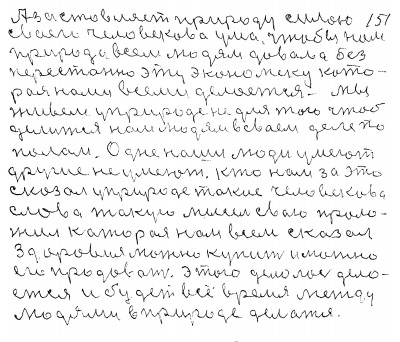 А заставляет природу силою 151
сваей человекова ума, чтобы нам
природа всем людям давала без
перестанно эту экономеку кото-
рая нами всеми делается. мы
живем уприроде не для того чтоб
делится нам людям всваем деле по
полам. Одне наши люди умеют
другие не умеют. кто нам за это
сказал уприроде такие человекова
слова такую мысль сваю проло-
жил каторая нам всем сказал
Здоровия можно купит и можно
его продоват. Этого делолос дело-
ется и будет всё время между
людями вприроде делатя.